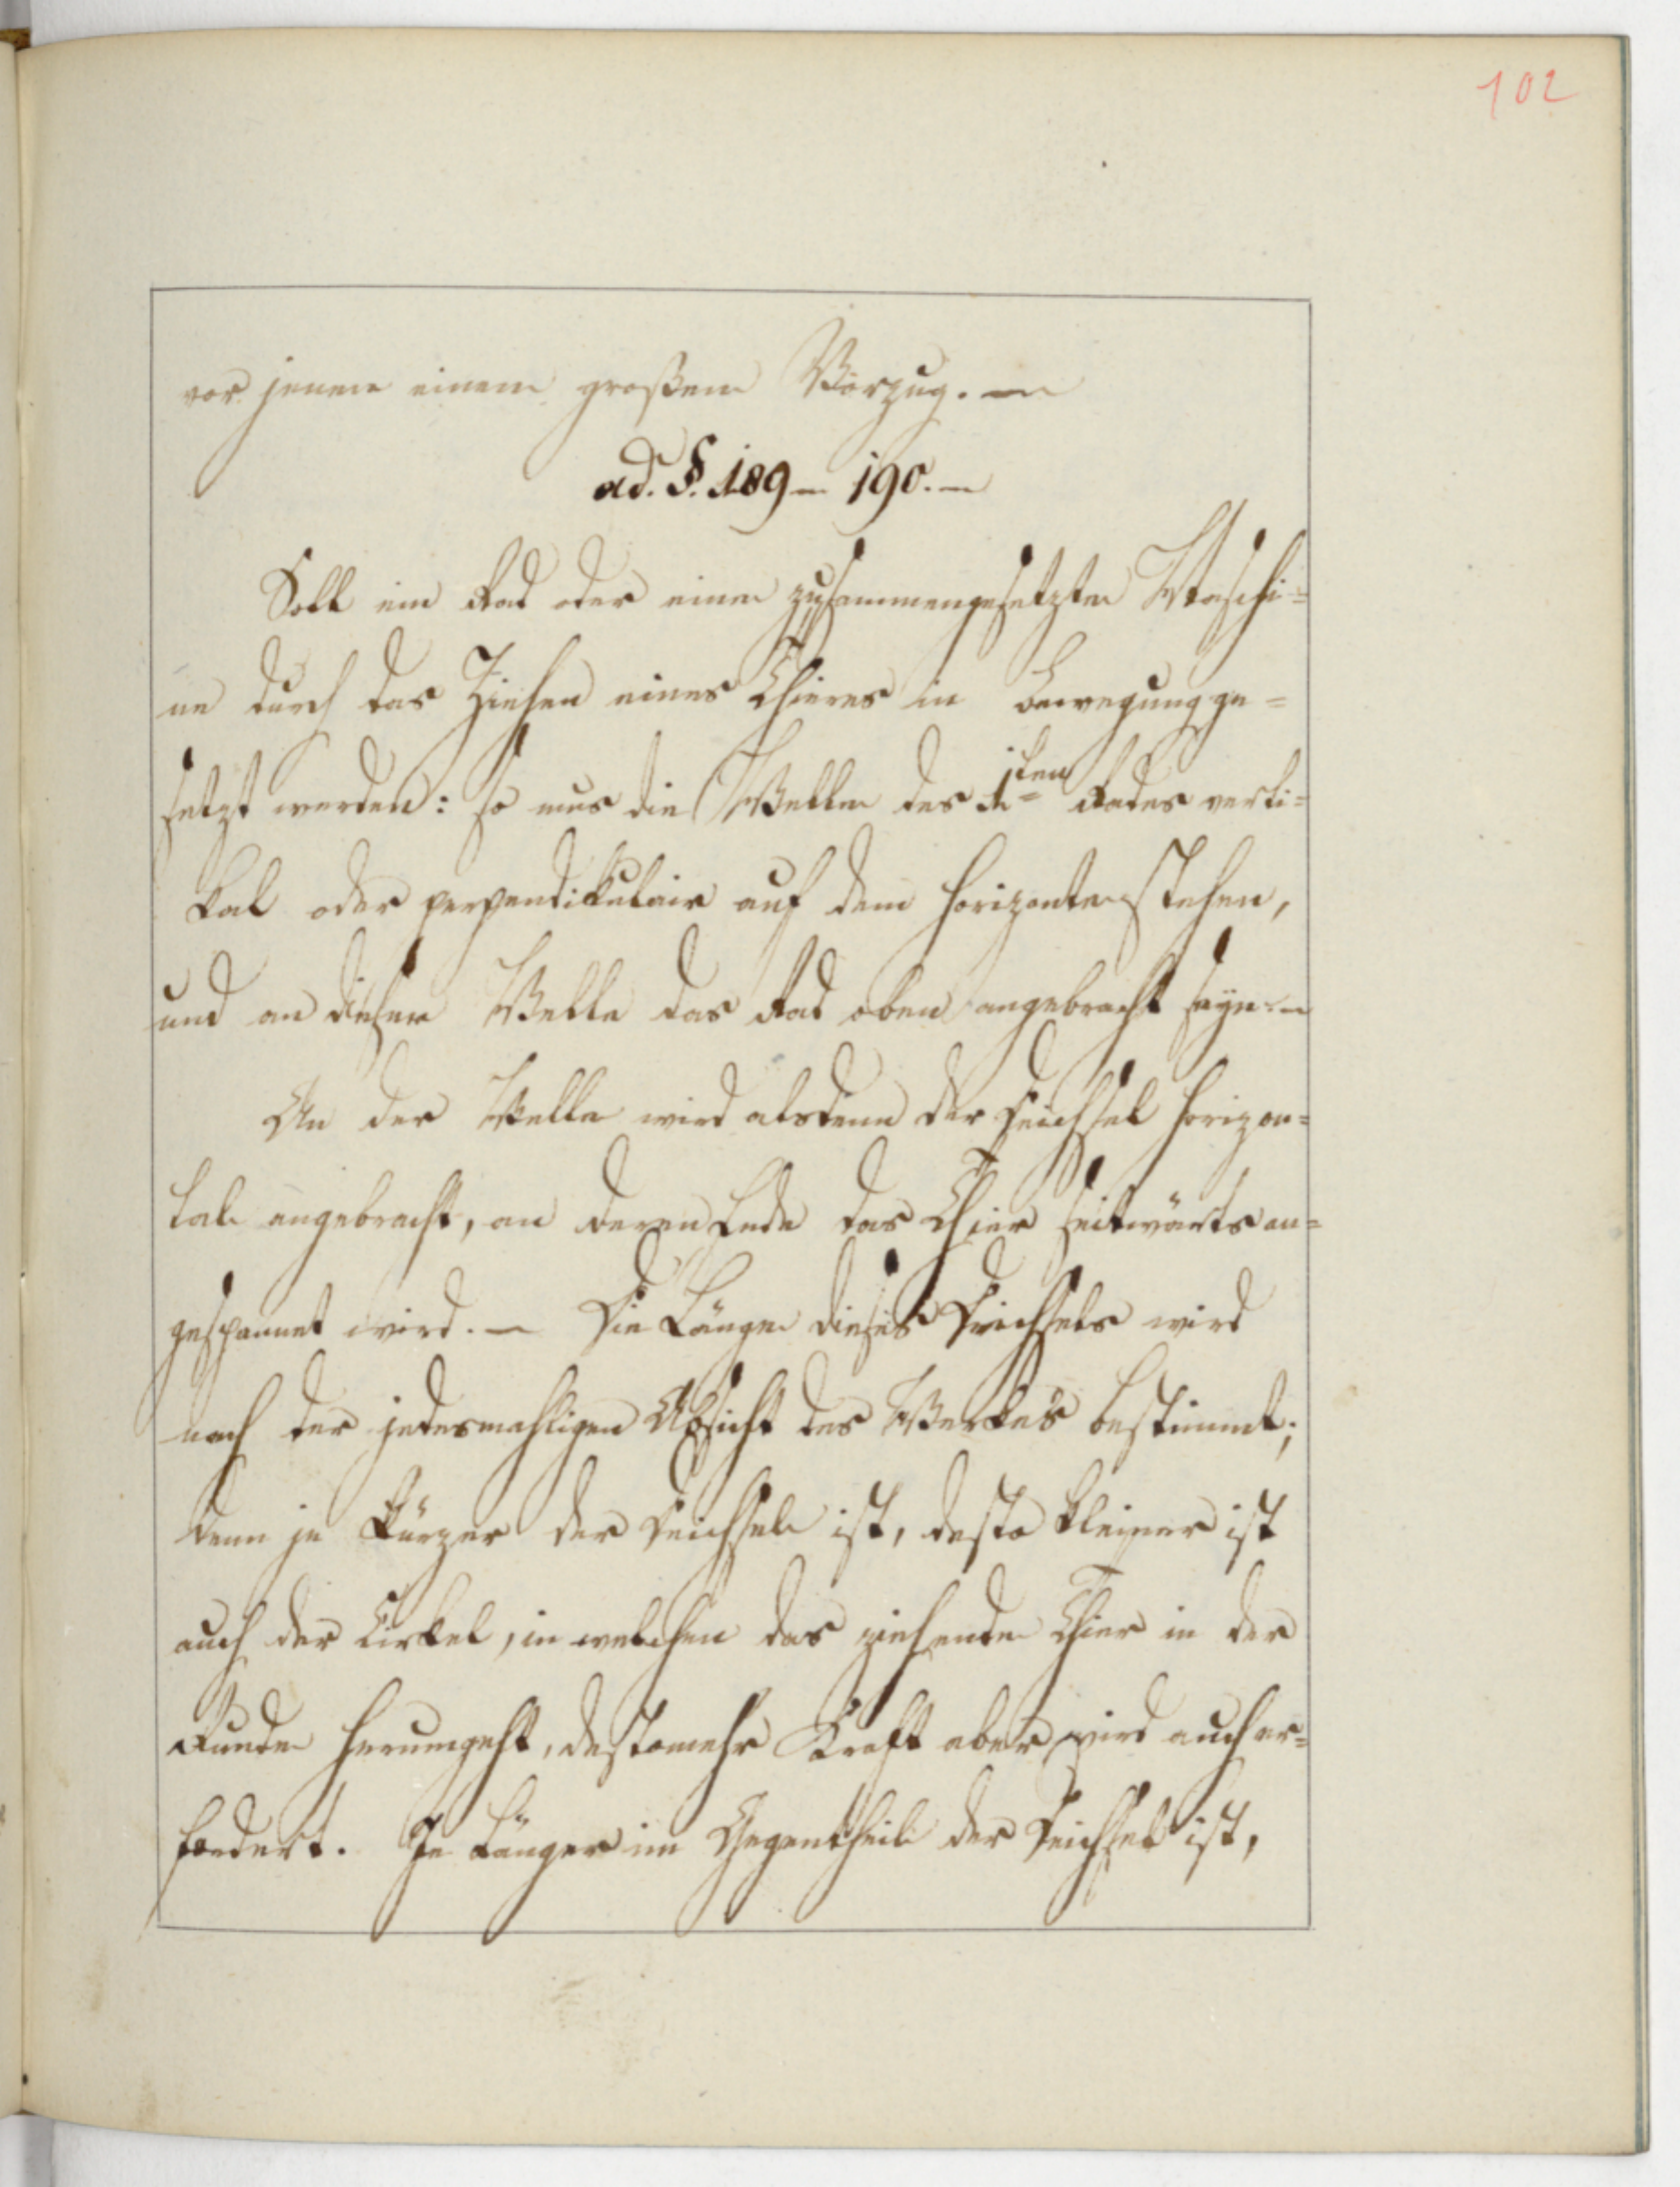 102
vor jenem einem großen Vorzug. —
ad. §. 189 — 190. —
Soll ein Rad oder eine zusammengesetzte Maschi=
ne durch das Ziehen eines Thieres in Bewegung ge=
setzt werden: so mus die Welle des 1sten Rades verti=
kal oder perpendikulair auf dem Horizonte stehen,
und an dieser Welle das Rad oben angebracht seyn. —
An der Welle wird alsdenn der Deichsel horizon=
tal angebracht, an deren Ende das Thier seitwärts an=
gespannet wird. — Die Länge dieses Deichsels wird
nach der jedesmahligen Absicht des Werkes bestimmt;
denn je kürzer der Deichsel ist, desto kleiner ist
auch der Cirkel, in welchen das ziehende Thier in der
Runde herumgeht, destomehr Kraft aber wird auch er=
fordert. Je länger im Gegentheil der Deichsel ist,